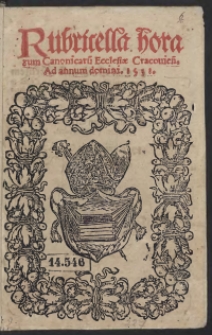 Rubricella hora
rum Canonicarū Ecclesiæ Cracovień.
Ad annum domini. 1531.
14.546